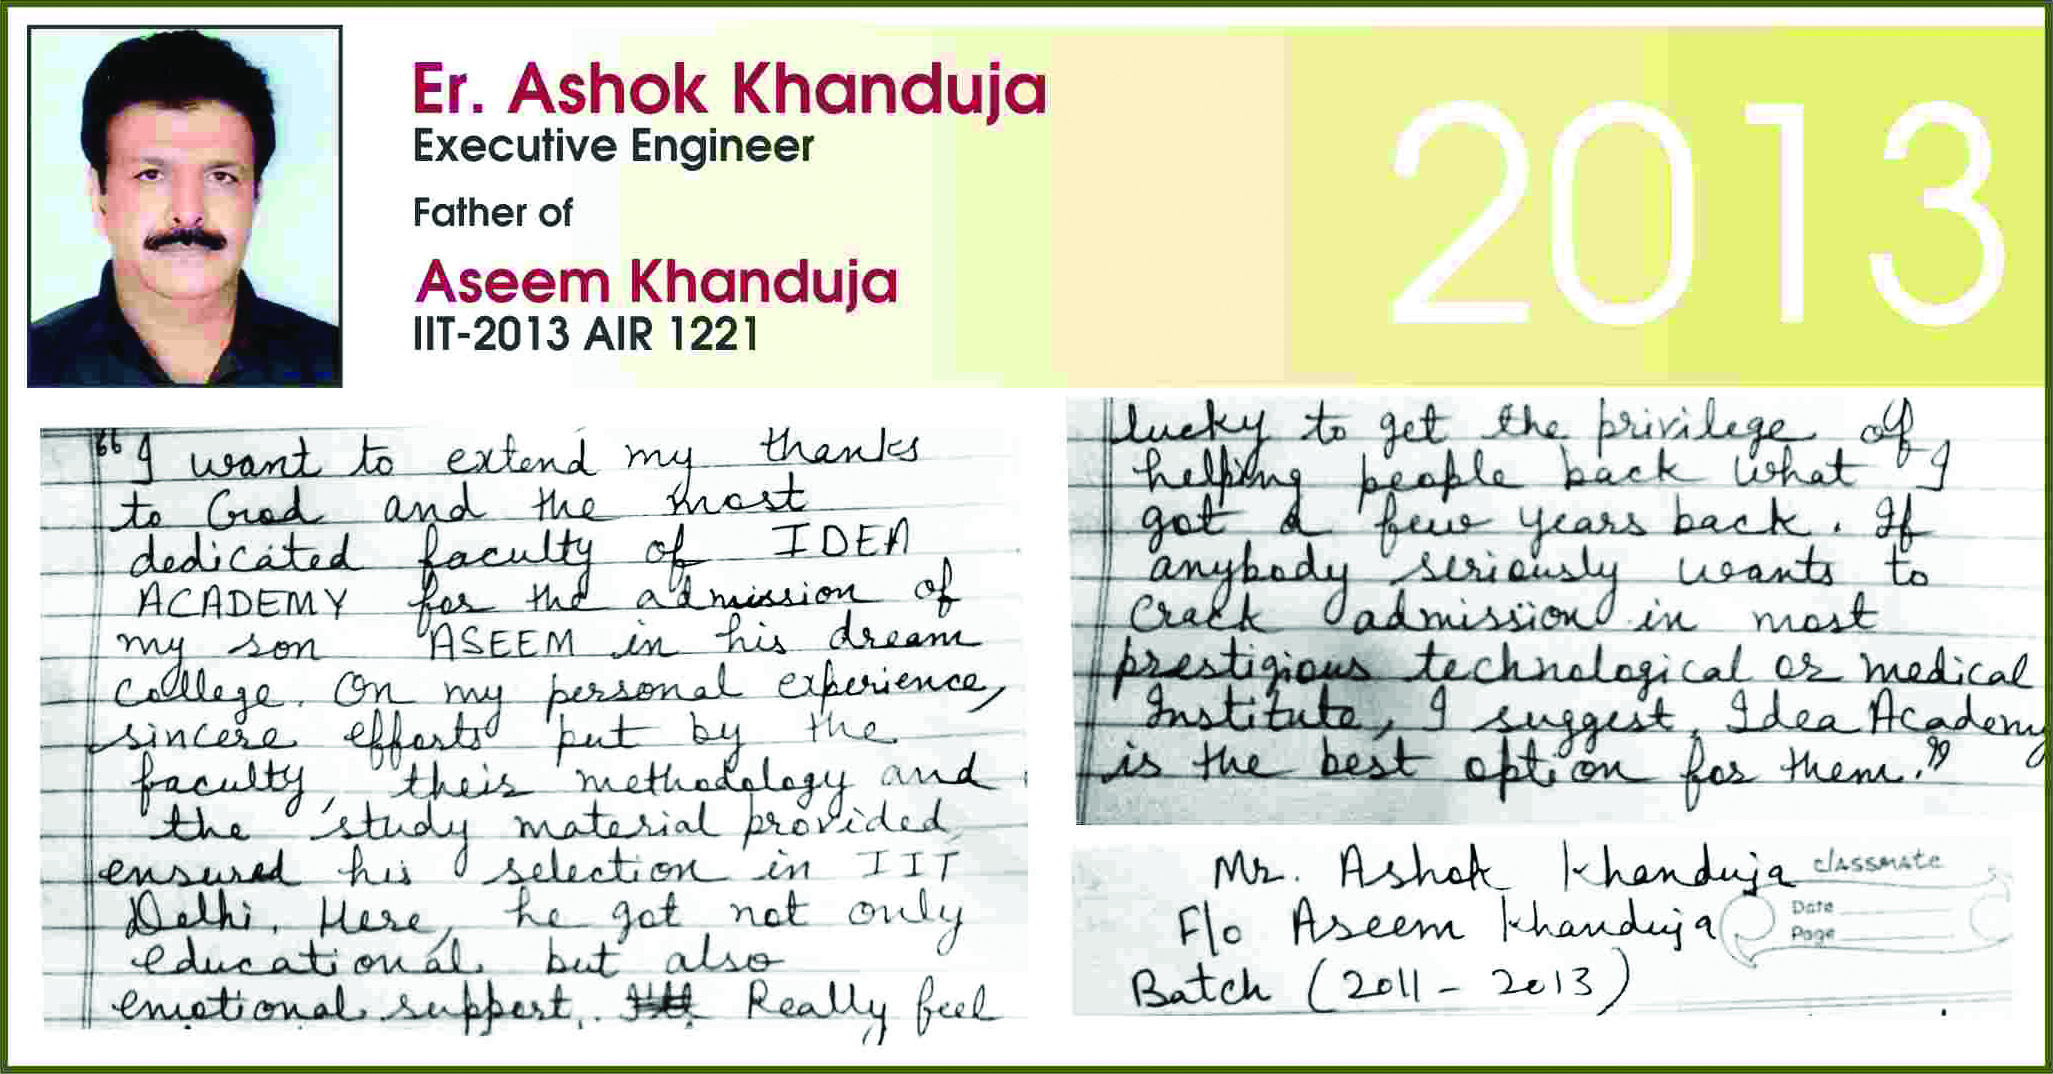 Er. Ashok Khanduja
Executive Engineer
Father of
Aseem Khanduja
IIT-2013 AIR 1221
2013
"I want to extend my thanks
to God and the most
dedicated faculty of IDEA
ACADEMY for the admission of
my son ASEEM in his dream
college. On my personal experience,
sincere efforts put by the
faculty, their methodology and
the study material provided
ensured his selection in IIT
Delhi. Here, he got not only
educational but also
emotional support. Really feel
lucky to get the privilege of
helping people back what I
got a few years back. If
anybody seriously wants to
crack admission in most
prestigious technological or medical
Institute, I suggest, Idea Academy
is the best option for them."
Mr. Ashok Khanduja
classmate
F/o Aseem Khanduja
Date
Page
Batch (2011 - 2013)